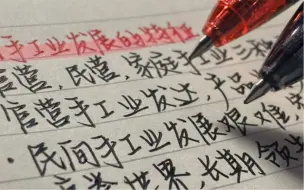 手工业发展的特征
官营,民营,家庭手工业三种
官营手工业发达,产品
·民间手工业发展艰难
世界 长期领先